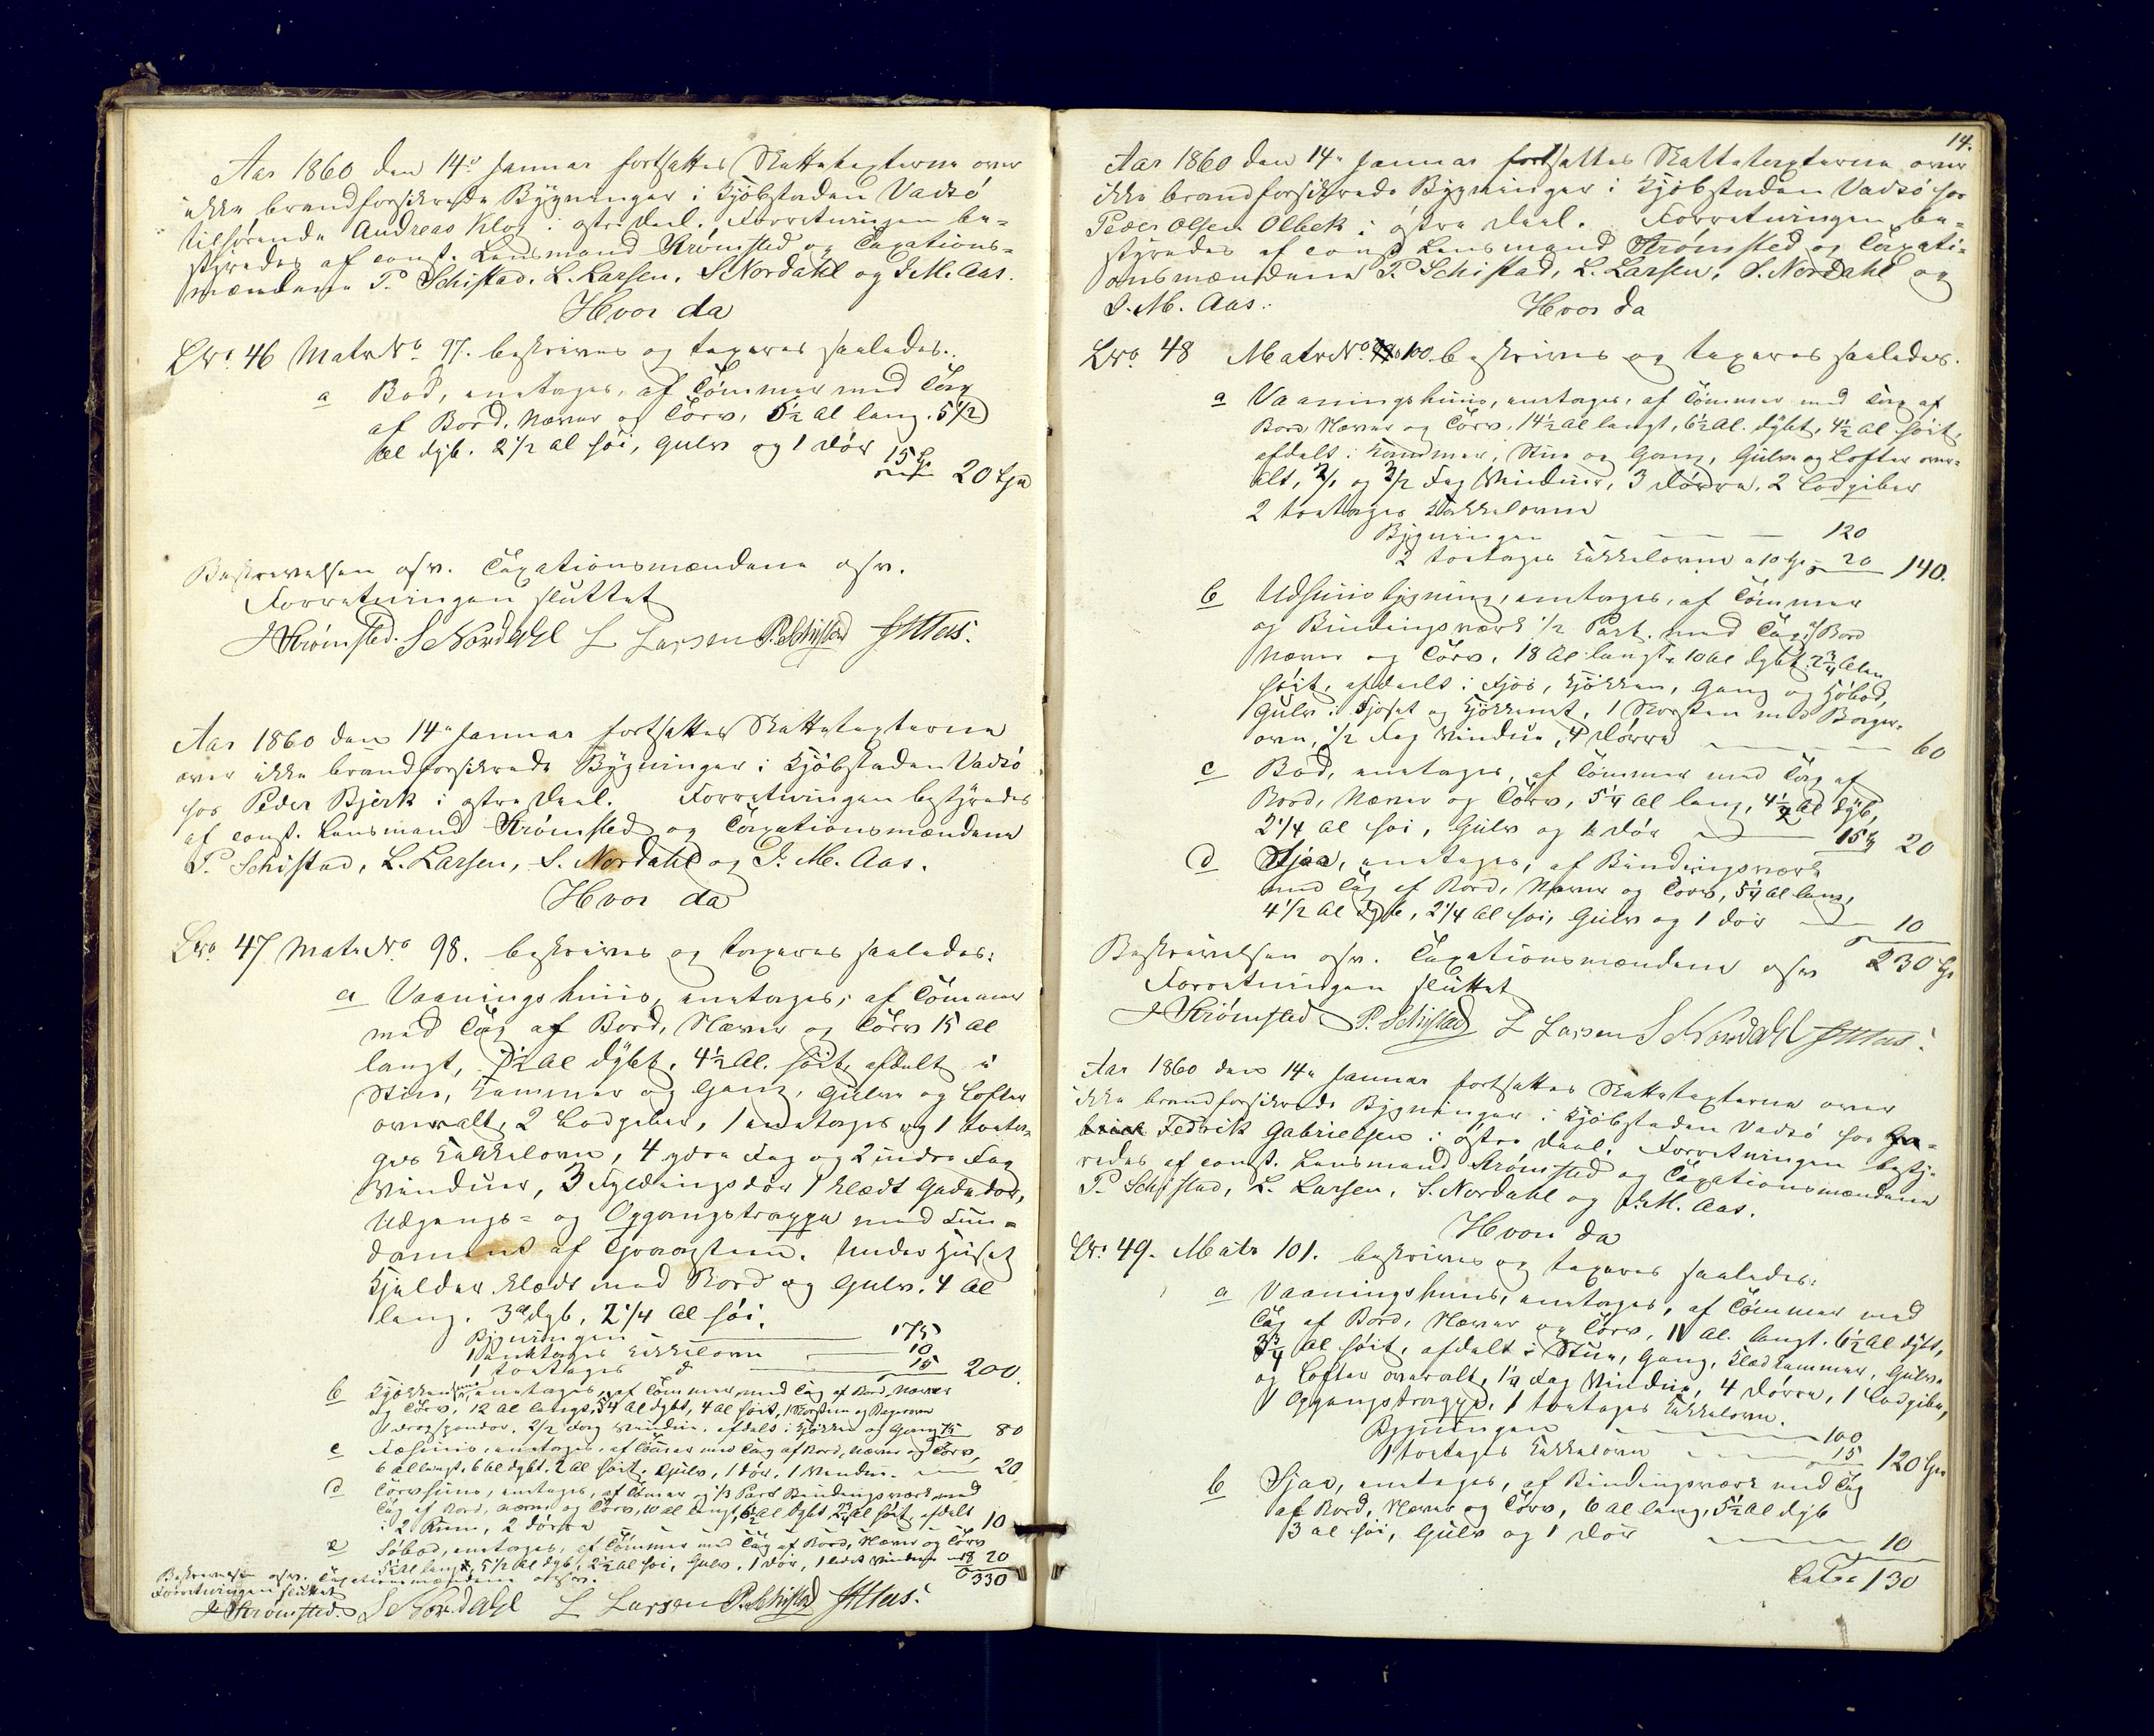 Aar 1860 den 14de Januar fortsattes Skattetaxterne over
ikke brandforsikrede Bygninger i Kjöbstaden Vadsö
tilhörende Andreas Klog i östre Deel. Forretningen be-
styredes af const. Lensmand Strömsted og Taxations-
mændene P. Schistad, L. Larsen, S. Nordahl og J. M. Aas.
Hvor da
Lno. 46 Matr No. 97. beskrives og taxeres saaledes..
a Bod, eenetages, af Tömmer med Tag
af Bord, Næver og Törv, 5 1/2 Al lang. 5 1/2
Al dyb. 2 1/2 Al höi, Gulv og 1 Dör 15 20
Beskrivelsen osv. Taxationsmændene osv.
Forretningen sluttet
J Strömsted. S Nordahl L Larsen P. Schistad JMAas.
Aar 1860 den 14de Januar fortsattes Skattetaxterne
over ikke brandforsikrede Bygninger i Kjöbstaden Vadsö
hos Peder Bjerk i östre Deel. Forretningen bestyredes
af const. Lensmand Strömsted og Taxationsmændene
P. Schistad, L. Larsen, S. Nordahl og J. M. Aas.
Hvor da
Lno. 47 Matr No. 98. beskrives og taxeres saaledes:
a Vaaningshuus, eenetages, af Tömmer
med Tag af Bord, Næver og Törv 15 Al
langt, 7 1/2 Al dybt, 4 1/2 Al. höit, afdelt i
Stue, Kammer og Gang, Gulve og Lofter
overalt, 2 Lodpiber, 1 eenetages og 1 toeta-
ges Kakkelovn, 4 ydre Fag og 2 indre Fag
Vinduer, 3 Fyldingsdör 1 klædt Gadedör,
Udgangs- og Opgangstrappe med Fun-
dament af Graasteen. Under Huset
Kjelder klædt med Bord og Gulv. 4 Al
lang. 3 Al dyb, 2 1/4 Al höi.
Bygningen 175
1 eenetages Kakkelovn 10
1 toetages d 15 200.
b Kjökken eenetages, af Tömmer med Tag af Bord, Næver
og Törv, 12 Al langt, 5 1/4 Al dybt, 4 Al höit, 1 Skorsteen og Bagerovn
2/2 Fag Vinduer, afdelt i Kjökken og Gang 75 80
c Fæhuus, eenetages, af Tömmer med Tag af Bord, Næver og Törv,
6 Al langt, 6 Al dybt, 2 Al höit, Gulv, 1 Dör, 1 Vindue. 20
d Törvhuus, eenetages, af Tömmer og 1/3 Part Bindingsværk med
Tag af Bord, Næver og Törv, 10 Al langt, 6 1/2 Al dybt, 2 3/4 Al höit, afdelt
i 2 Rum, 2 Dörre 10
e Söbod, eenetages, af Tömmer med Tag af Bord, Næver og Törv
5 1/2 Al lang, 5 1/2 Al dyb, 2 1/2 Al höi, Gulv, 1 Dör, 1 Vindue 18 20
330
Beskrivelsen osv. Taxationsmændene osv.
Forretningen sluttet
J Strömsted. S Nordahl L Larsen P. Schistad JMAas.
14.
Aar 1860 den 14de Januar fortsattes Skattetaxterne over
ikke brandforsikrede Bygninger i Kjöbstaden Vadsö hos
Peder Olsen Olbek i östre Deel. Forretningen be-
styredes af const. Lensmand Strömsted og Taxati-
onsmændene P. Schistad, L. Larsen, S. Nordahl og
J. M. Aas:
Hvor da
Lno. 48 Matr No. 100. beskrives og taxeres saaledes.
a Vaaningshuus, eenetages, af Tömmer med Tag af
Bord Næver og Törv, 14 1/2 Al langt, 6 1/2 Al. dybt, 4 1/2 Al höit,
afdelt i Kammer, Stue og Gang, Gulve og Lofter over-
alt, 2/1 og 3/2 Fag Vinduer, 3 Dörre, 2 Lodpiber
2 toetages Kakkelovne
Bygningen 120
2 toetages Kakkelovne a 10 20 140.
b Udhuusbygning, eenetages, af Tömmer
og Bindingsværk 1/2 Part. med Tag af Bord
Næver og Törv, 18 Al langt, 10 Al dybt, 2 3/4 Alen
höit, afdeelt i Fjös, Kjökken, Gang og Höbod,
Gulv i Fjöset og Kjökkenet, 1 Skorsten med Bager-
ovn, 1/2 Fag Vindue, 4 Dörre 60
c Bod, eenetages, af Tömmer med Tag af
Bord, Næver og Törv, 5 1/4 Al lang, 4 1/2 Al dyb,
2 1/4 Al höi, Gulv og 1 Dör 15 20
d Sjaa, eenetages, af Bindingsværk
med Tag af Bord, Næver og Törv, 5 1/4 Al lang,
4 1/2 Al dyb, 2 1/4 Al höi, Gulv og 1 Dör 10
Beskrivelsen osv. Taxationsmændene osv 230
Forretningen sluttet
J Strömsted P. Schistad L Larsen S Nordahl JMAas.
Aar 1860 den 14de Januar fortsattes Skattetaxterne over
ikke brandforsikrede Bygninger i Kjöbstaden Vadsö hos
Fedrik Gabrielsen i östre Deel. Forretningen besty-
redes af const. Lensmand Strömsted og Taxationsmændene
P. Schistad, L. Larsen, S. Nordahl og J. M. Aas.
Hvor da
Lno. 49. Matr 101. beskrives og taxeres saaledes:
a Vaaningshuus, eenetages, af Tömmer med
Tag af Bord, Næver og Törv, 11 Al. langt. 6 1/2 Al dybt,
3 3/4 Al höit, afdelt i Stue, Gang, Klædkammer, Gulve
og Lofter overalt, Fag Vindue, 4 Dörre, 1 Lodpibe,
1 Opgangstrappe, 1 toetages Kakkelovn.
Bygningen 100
1 toetages Kakkelovn 15 120
b Sjaa, eenetages, af Bindingsværk med Tag
af Bord, Næver og Törv, 6 Al lang, 5 1/2 Al dyb
3 Al höi, Gulv og 1 Dör 10
Latus 130